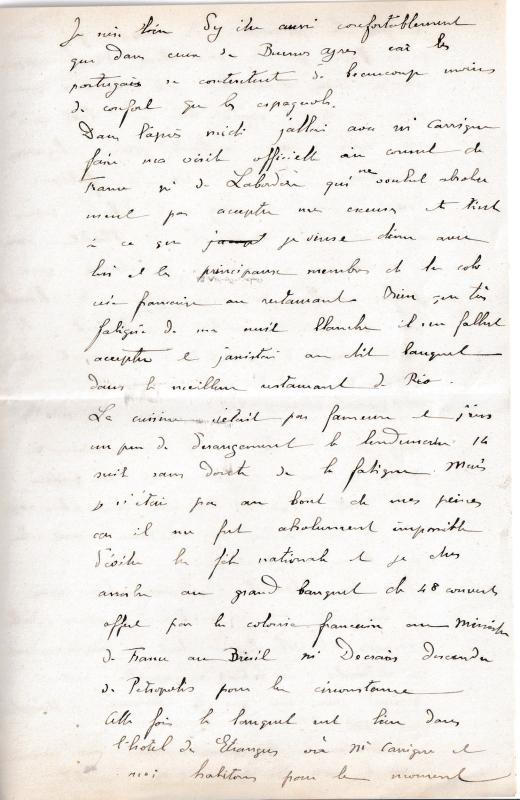 Je suis loin d'y être aussi confortablement
que dans ceux de Buenos ayres car les
portugais se contentent de beaucoup moins
de confort que les espagnols.
Dans l'après midi j'allai avec Mr Carrique
faire ma visite officielle au consul de
France Mr de Labordère qui ne voulut absolu
ment pas accepter mes excuses et tint
à ce que je vinsse dîner avec
lui et les principaux membres de la colo
nie française au restaurant. Bien que très
fatigué de ma nuit blanche il me fallut
accepter et j'assistai au dit banquet
dans le meilleur restaurant de Rio.
La cuisine n'était pas fameuse et j'eus
un peu de dérangement le lendemain 14
soit sans doute de la fatigue. Mais
je n'étais pas au bout de mes peines
car il me fut absolument impossible
d'éviter la fête nationale et je dus
assister au grand banquet de 48 couverts
offert par la colonie française au Ministre
de France au Brésil Mr Decrais descendu
de Pétropolis pour la circonstance
Cette fois le banquet eut lieu dans
l'hôtel des Etrangers où Mr Carrique et
moi habitons pour le moment